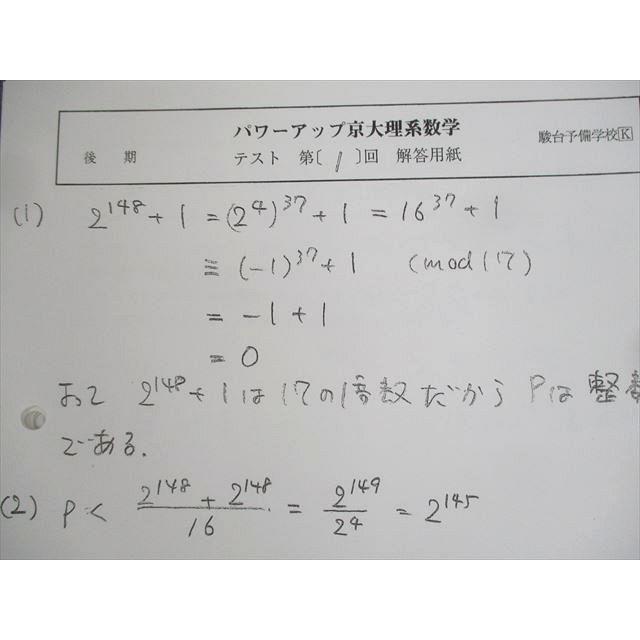 パワーアップ京大理系数学
後 期 テスト 第〔 1 〕回 解答用紙 駿台予備学校K
(1) 2^148 + 1 = (2^4)^37 + 1 = 16^37 + 1
≡ (-1)^37 + 1 (mod 17)
= -1 + 1
= 0
よって 2^148 + 1 は 17の倍数だから Pは 整数
である.
(2) P < (2^148 + 2^148)/16 = 2^149/2^4 = 2^145